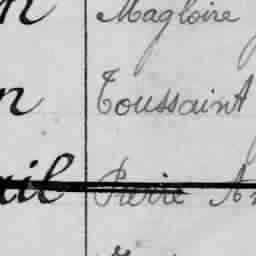 n Magloire
n Toussaint
ail Pierre An